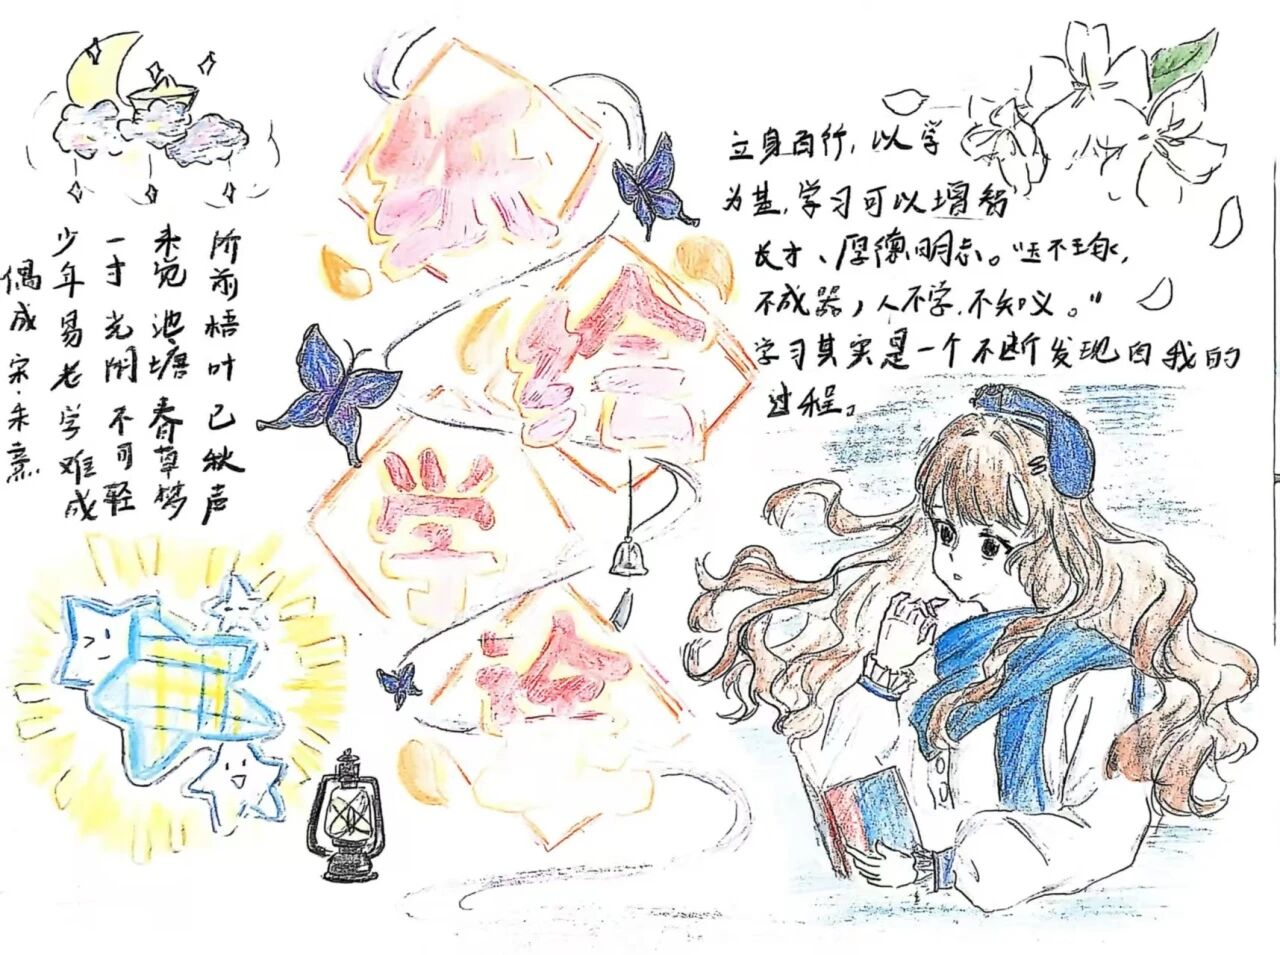 绘
学
阶前梧叶已秋声
未觉池塘春草梦
一寸光阴不可轻
少年易老学难成
偶成 宋·朱熹
立身百行，以学
为基，学习可以增智
长才、厚德明志。“玉不琢，
不成器，人不学，不知义。”
学习其实是一个不断发现自我的
过程。